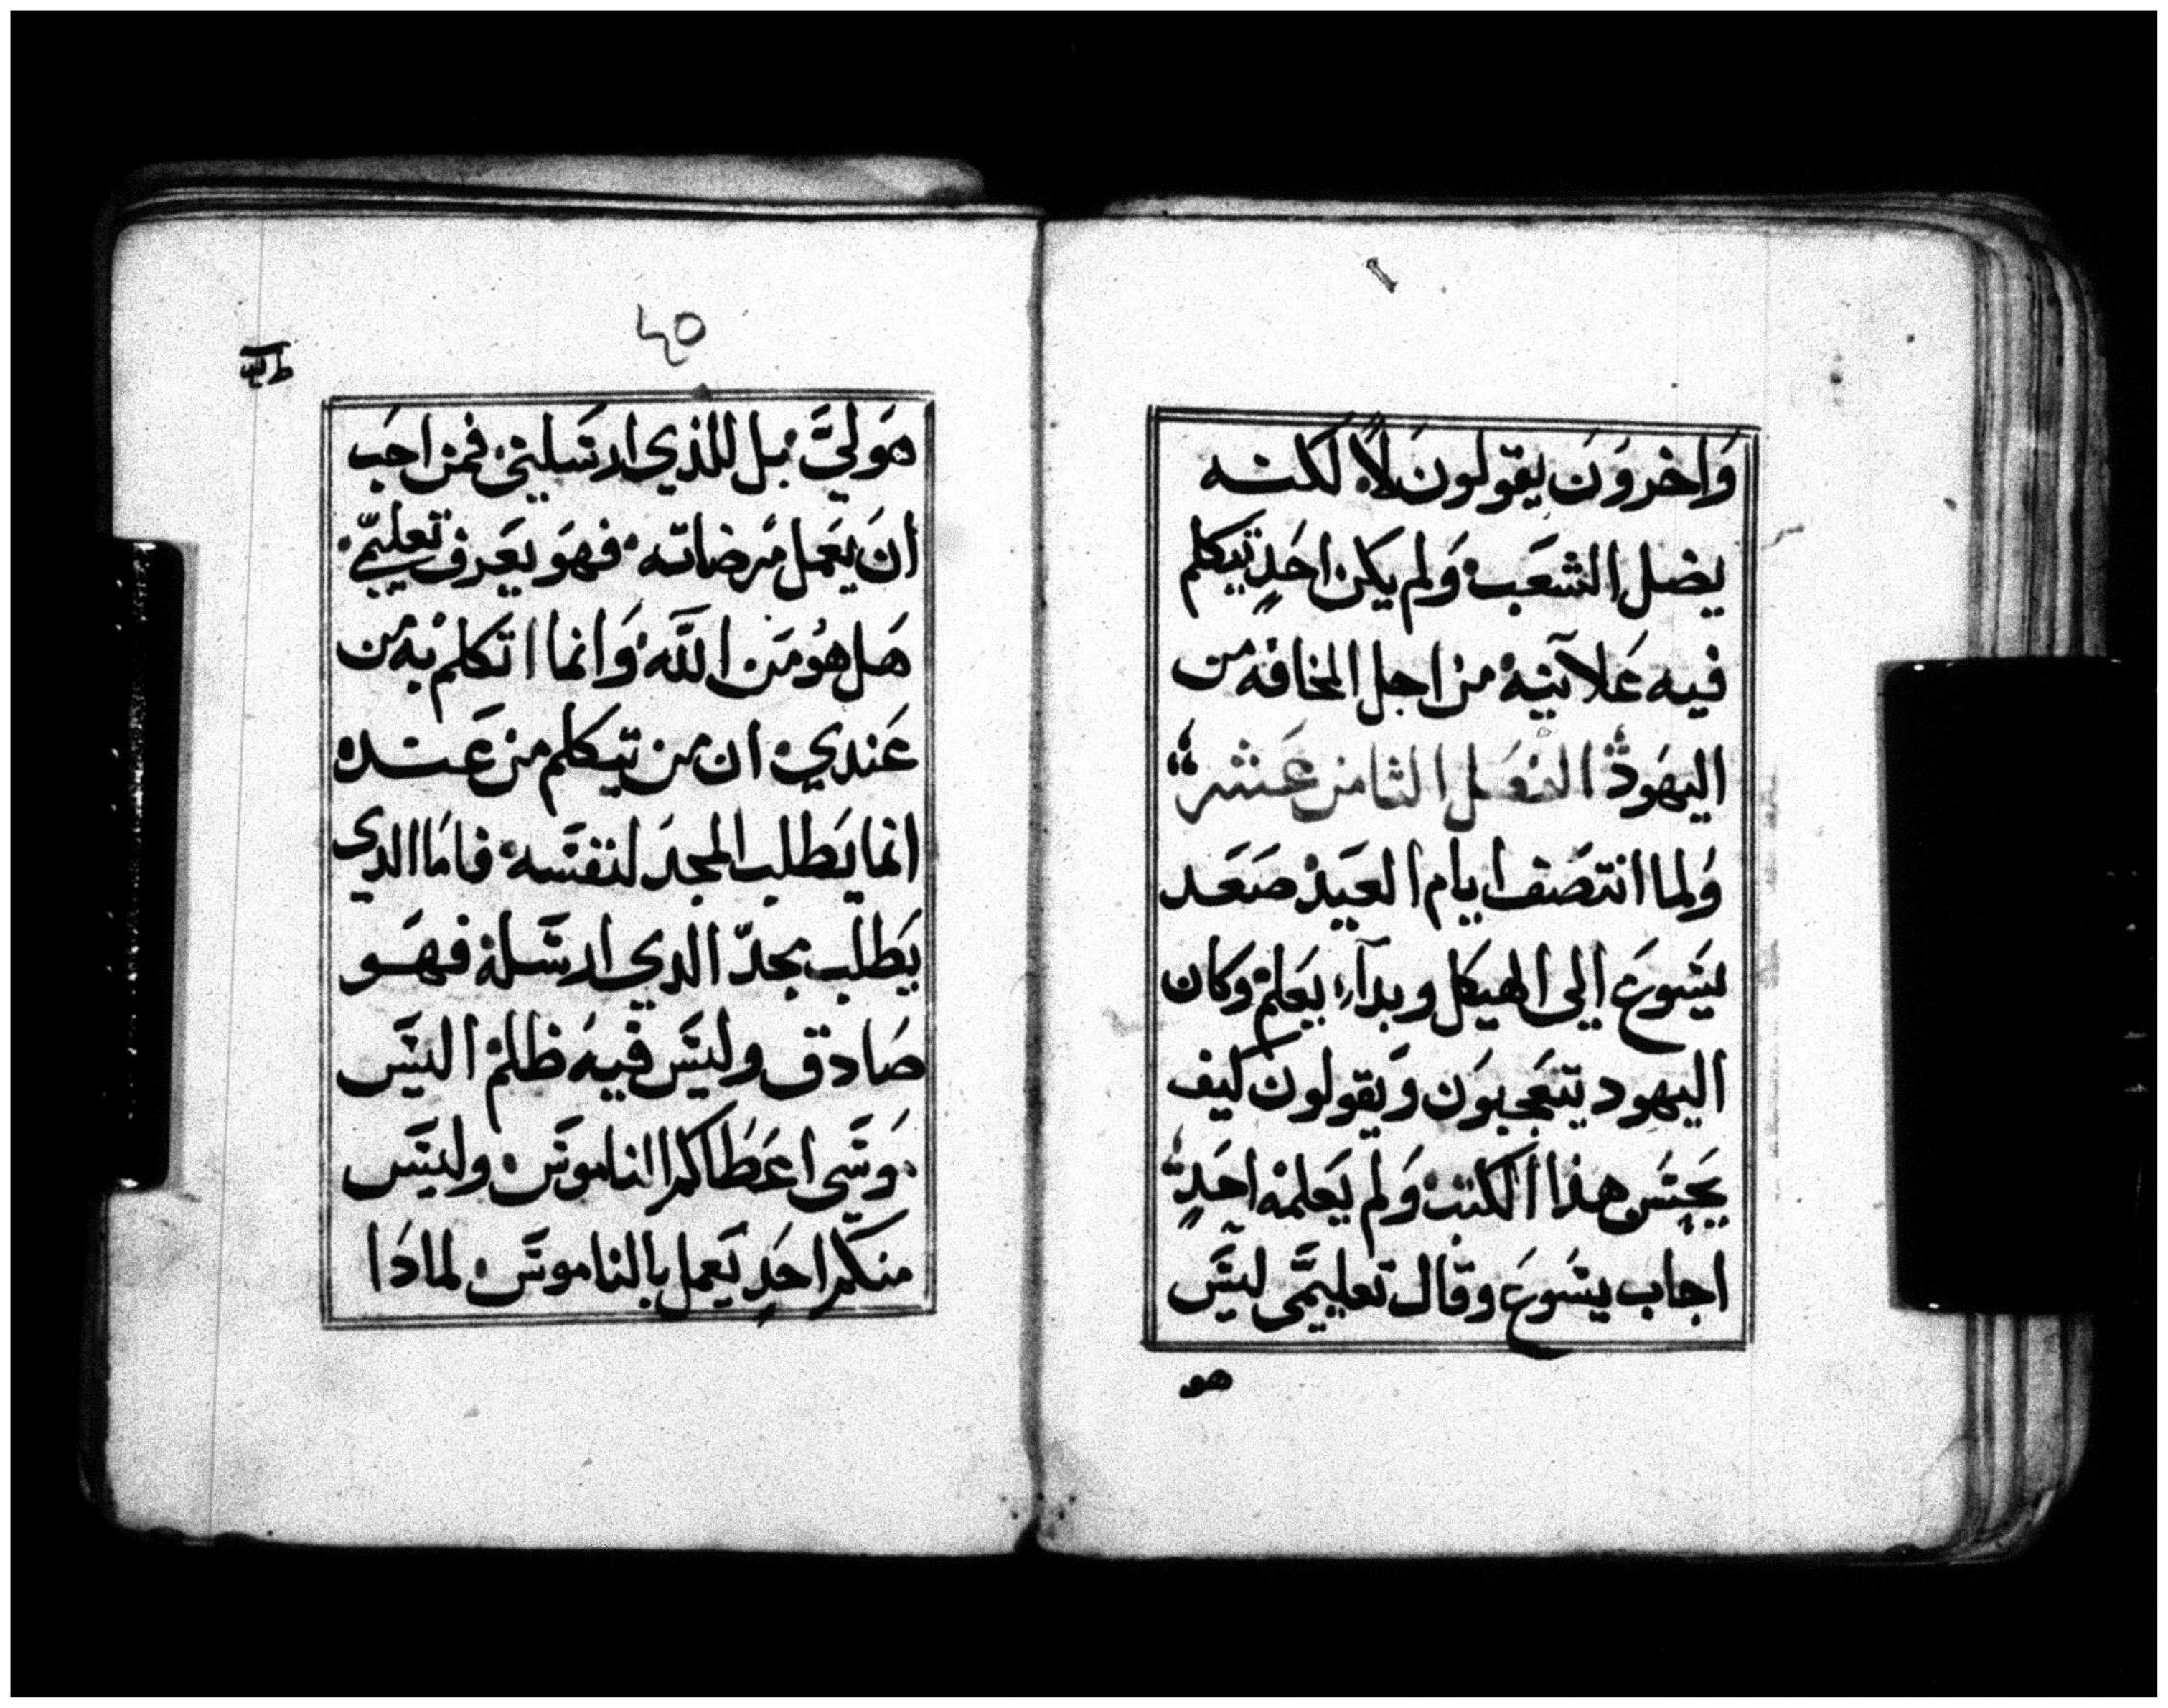 وَاخرَوَن يقولون لَا لكنه
يضل الشعَب وَلم يكن احَدٍ تيكلم
فيه عَلآنيه من اجل المخافه من
اليهَود الفصل الثامن عَشر
وَلما انتصَف ايام العَيد صَعَد
يَسَوعَ اِلي الهيكل وبدآء يَعَلم وكان
اليهود يتعَجبوَن وَيقولون كيف
يَحِسَن هذا الكتب وَلم يَعلمه احَدٍ
اجاب يسَوعَ وقال تعليمَي ليسَ
هو
40
هَو ليَّ بل للذي ارسَلني فمن احَب
انَ يَعَمل مَرضاته فهوَ يَعَرف تعليمّي
هَل هوُ مَن اللَّه وَانما اتكلم به من
عَندي ان من تيكلم من عَنده
انما يَطلب المجدَ لنفسَه فامَا الدي
يَطلب مجدّ الدي ارسَله فهَو
صَادق وليسَ فيه ظلم اليسَ
موَسَي اعَطَاكم الناموسَ وليسَ
منكم احَدٍ يَعمل بالناموسَ لمادَا